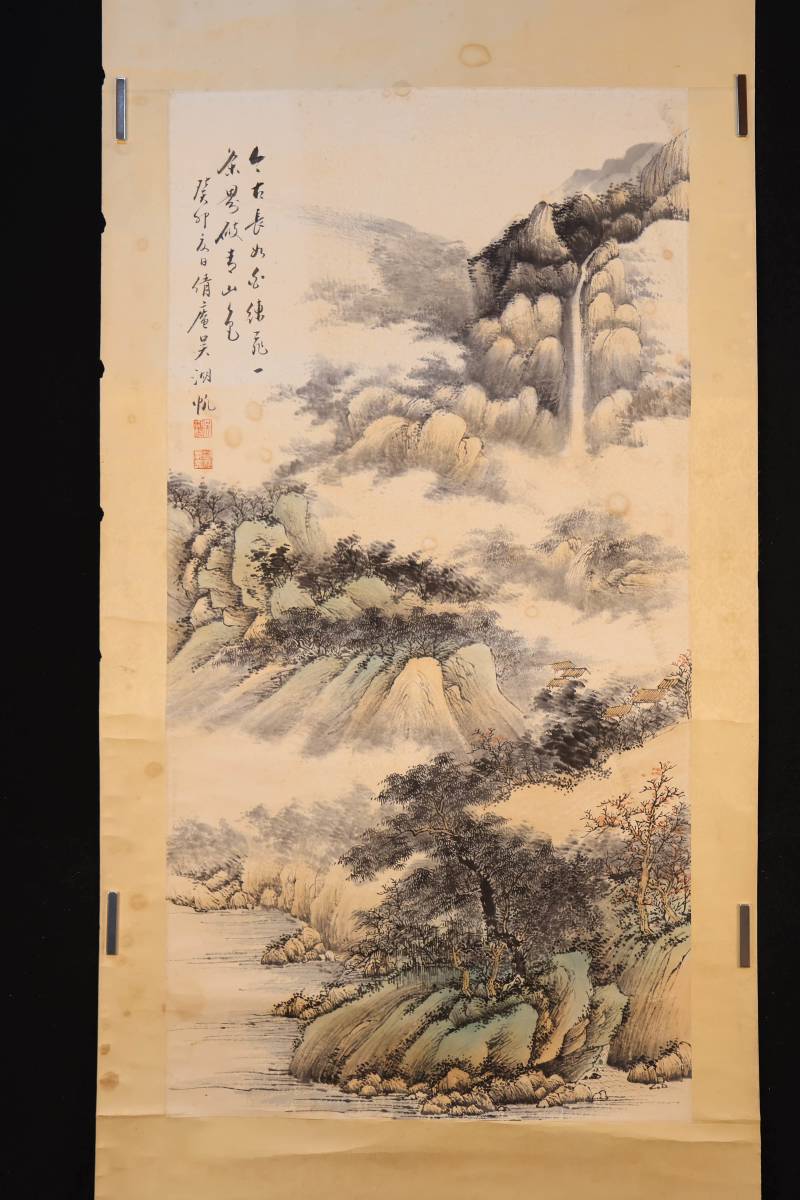 今古長如白練飛一
条界破青山色
癸卯夏日倩庵吴湖帆